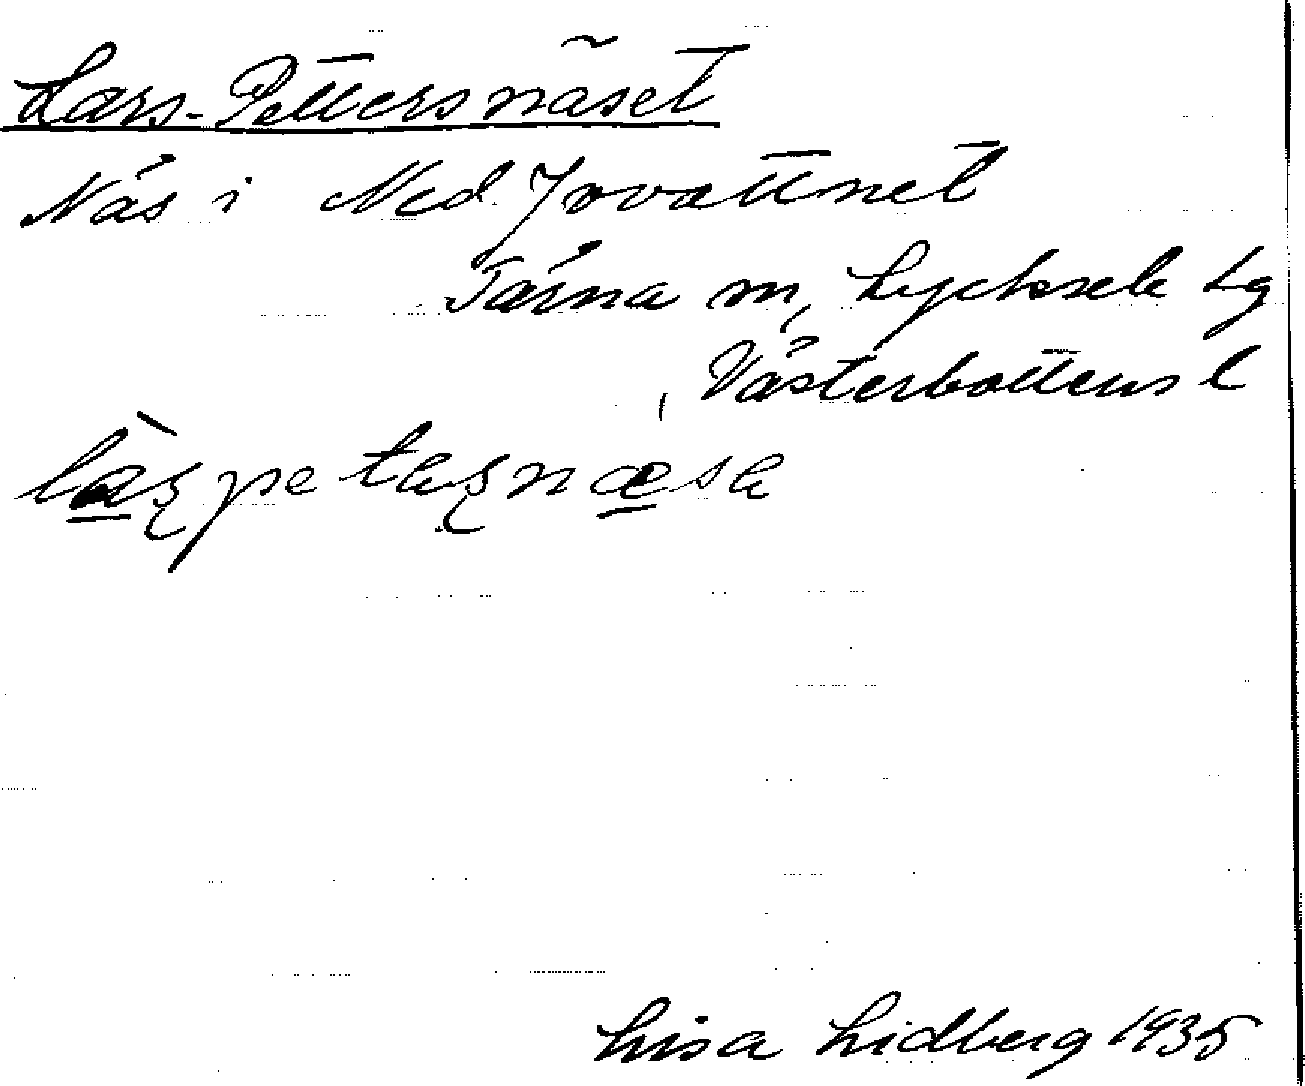 Lars-Pettersnäset
Näs i Ned. Jovattnet
Tärna sn, Lycksele lg
Västerbottens l
Lisa Lidberg 1935